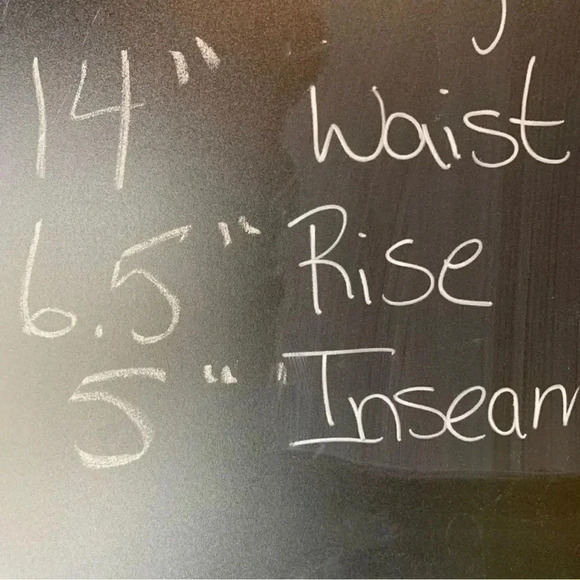 14" Waist
6.5" Rise
5" Inseam